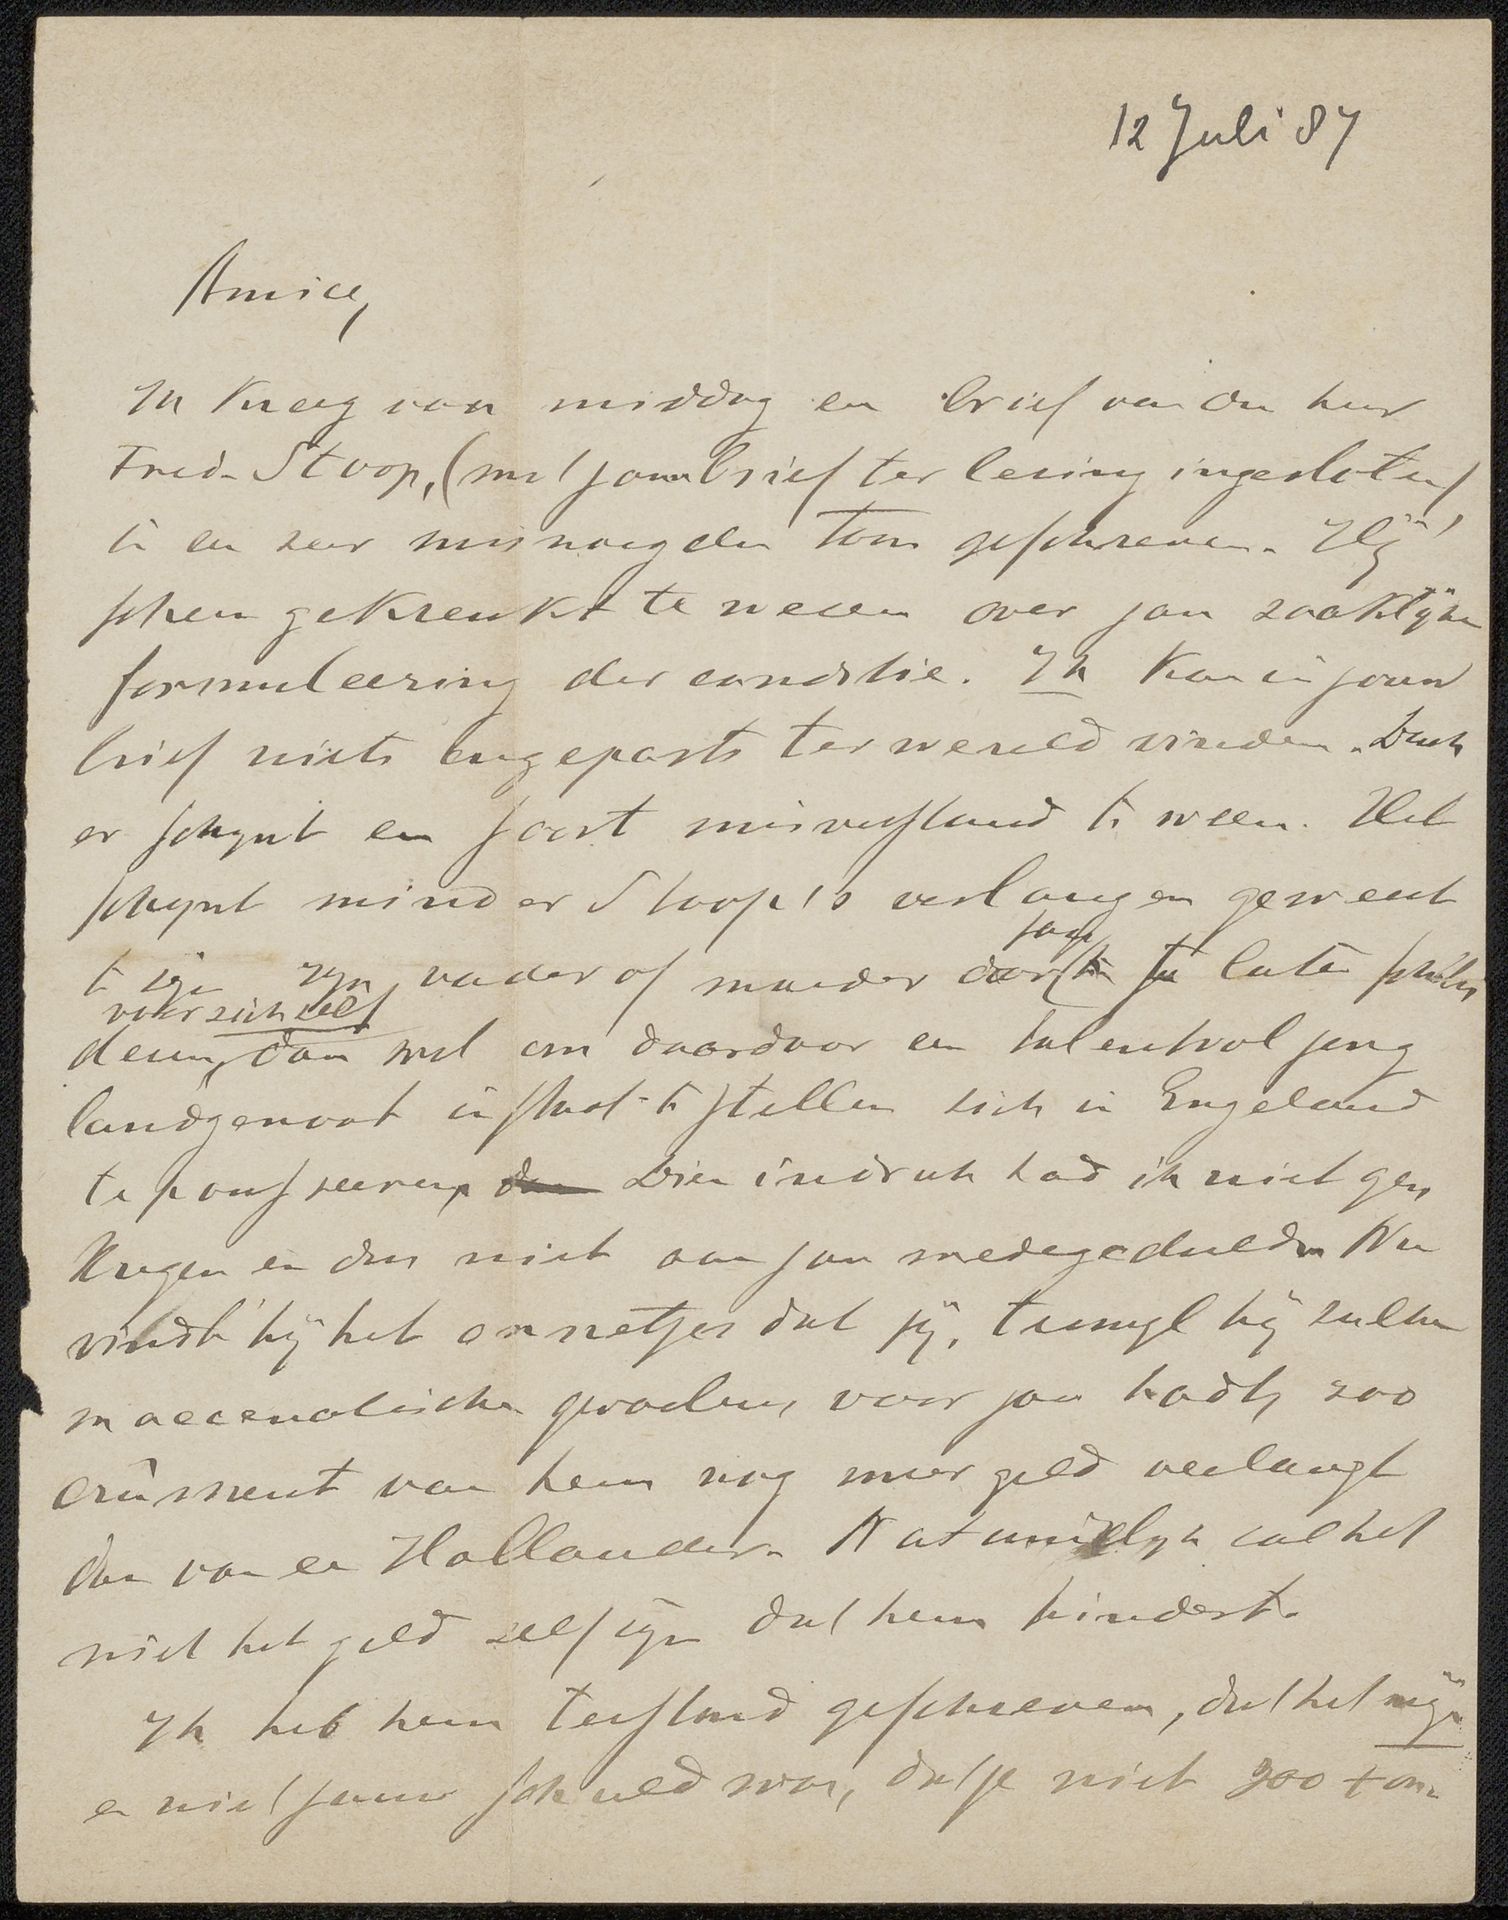 12 Juli 87
Amice,
Ik kreeg van middag en brief van den heer
Fred. Stoop, (met jouw brief ter lezing ingesloten)
in en zeer misnoegden toon geschreven. Hij
scheen gekrenkt te wezen over jou zaaklijke
formuleering der conditie. Ik kan in jouw
brief niets ongepasts ter wereld vinden. Doch
er schynt en soort misverstand te wezen. Het
schynt minder Stoop's verlangen geweest
te zijn zyn vader of moeder door jou te laten schil
voor zich zelf
deren, dan wel om daardoor en talentvol jong
landgenoot in staat te stellen zich in Engeland
te pousseeren. Dien indruk had ik niet ge
kregen en dus niet aan jou medegedeeld. Nu
vindt hij het onnetjes dat jij, terwyl hij zulke
maecenatische voor jou hadt, zoo
crûment van hem nog meer geld verlangt
dan van en Hollander. Natuurlyk zal het
niet het geld zelf zijn dat hem hindert.
Ik heb hem terstond geschreven, dat het mijn
en niet jouw schuld was, dat je niet zoo con